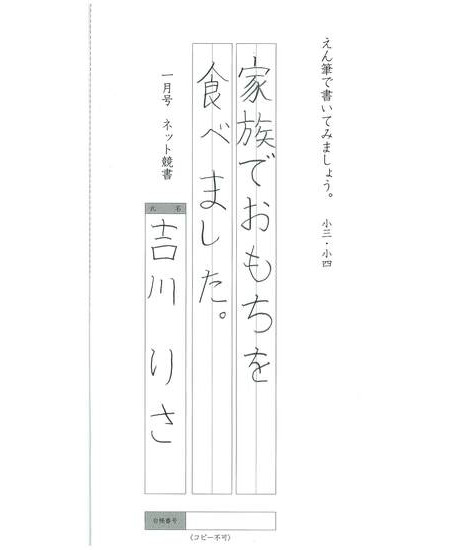 えん筆で書いてみましょう。 小三・小四
家族でおもちを
食べました。
一月号 ネット競書
氏名
吉川 りさ
合格番号
(コピー不可)